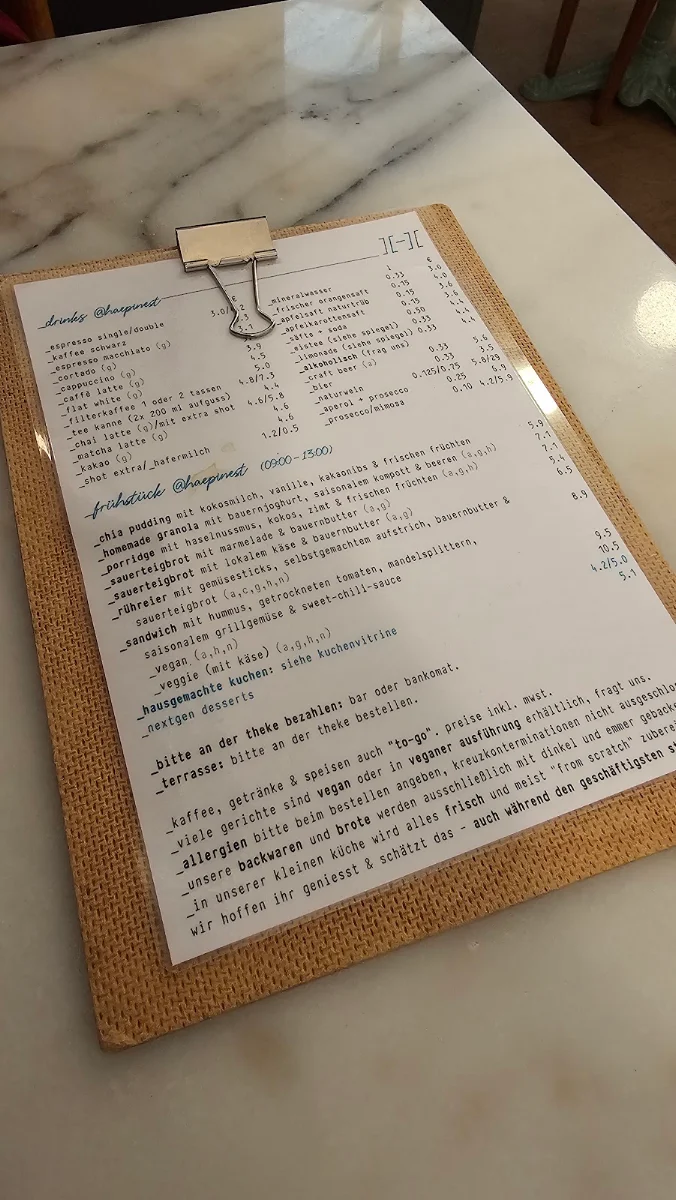 ][-][
_drinks @haepinest
€
_espresso single/double
_kaffee schwarz
_espresso macchiato (g) 3.1
_cortado (g)
_cappuccino (g) 3.9
_caffè latte (g) 4.5
_flat white (g) 5.0
_filterkaffee 1 oder 2 tassen 4.8/7.3
_tee kanne (2x 200 ml aufguss) 4.4
_chai latte (g)/mit extra shot 4.6/5.8
_matcha latte (g) 4.6
_kakao (g) 4.6
_shot extra/_hafermilch 1.2/0.5
l €
_mineralwasser 0.33 3.0
_frischer orangensaft 0.15 4.0
_apfelsaft naturtrüb 0.15 3.6
_apfelkarottensaft 0.15 3.6
_säfte + soda 0.50 4.4
_eistee (siehe spiegel) 0.33 4.4
_limonade (siehe spiegel) 0.33 4.4
_alkoholisch (frag uns)
_craft beer (a) 0.33 5.6
_bier 0.33 3.5
_naturwein 0.125/0.75 5.8/29
_aperol + prosecco 0.25 6.9
_prosecco/mimosa 0.10 4.2/5.9
_frühstück @haepinest (09:00-13:00)
_chia pudding mit kokosmilch, vanille, kakaonibs & frischen früchten 5.9
_homemade granola mit bauernjoghurt, saisonalem kompott & beeren (a,g,h) 7.1
_porridge mit haselnussmus, kokos, zimt & frischen früchten (a,g,h) 7.1
_sauerteigbrot mit marmelade & bauernbutter (a,g) 5.4
_sauerteigbrot mit lokalem käse & bauernbutter (a,g) 6.5
_rühreier mit gemüsesticks, selbstgemachtem aufstrich, bauernbutter &
sauerteigbrot (a,c,g,h,n) 8.9
_sandwich mit hummus, getrockneten tomaten, mandelsplittern,
saisonalem grillgemüse & sweet-chili-sauce
_vegan (a,h,n) 9.5
_veggie (mit käse) (a,g,h,n) 10.5
_hausgemachte kuchen: siehe kuchenvitrine 4.2/5.0
_nextgen desserts 5.1
_bitte an der theke bezahlen: bar oder bankomat.
_terrasse: bitte an der theke bestellen.
_kaffee, getränke & speisen auch "to-go". preise inkl. mwst.
_viele gerichte sind vegan oder in veganer ausführung erhältlich, fragt uns.
_allergien bitte beim bestellen angeben, kreuzkonterminationen nicht ausgeschlos
_unsere backwaren und brote werden ausschließlich mit dinkel und emmer gebacke
_in unserer kleinen küche wird alles frisch und meist "from scratch" zuberei
wir hoffen ihr geniesst & schätzt das - auch während den geschäftigsten st